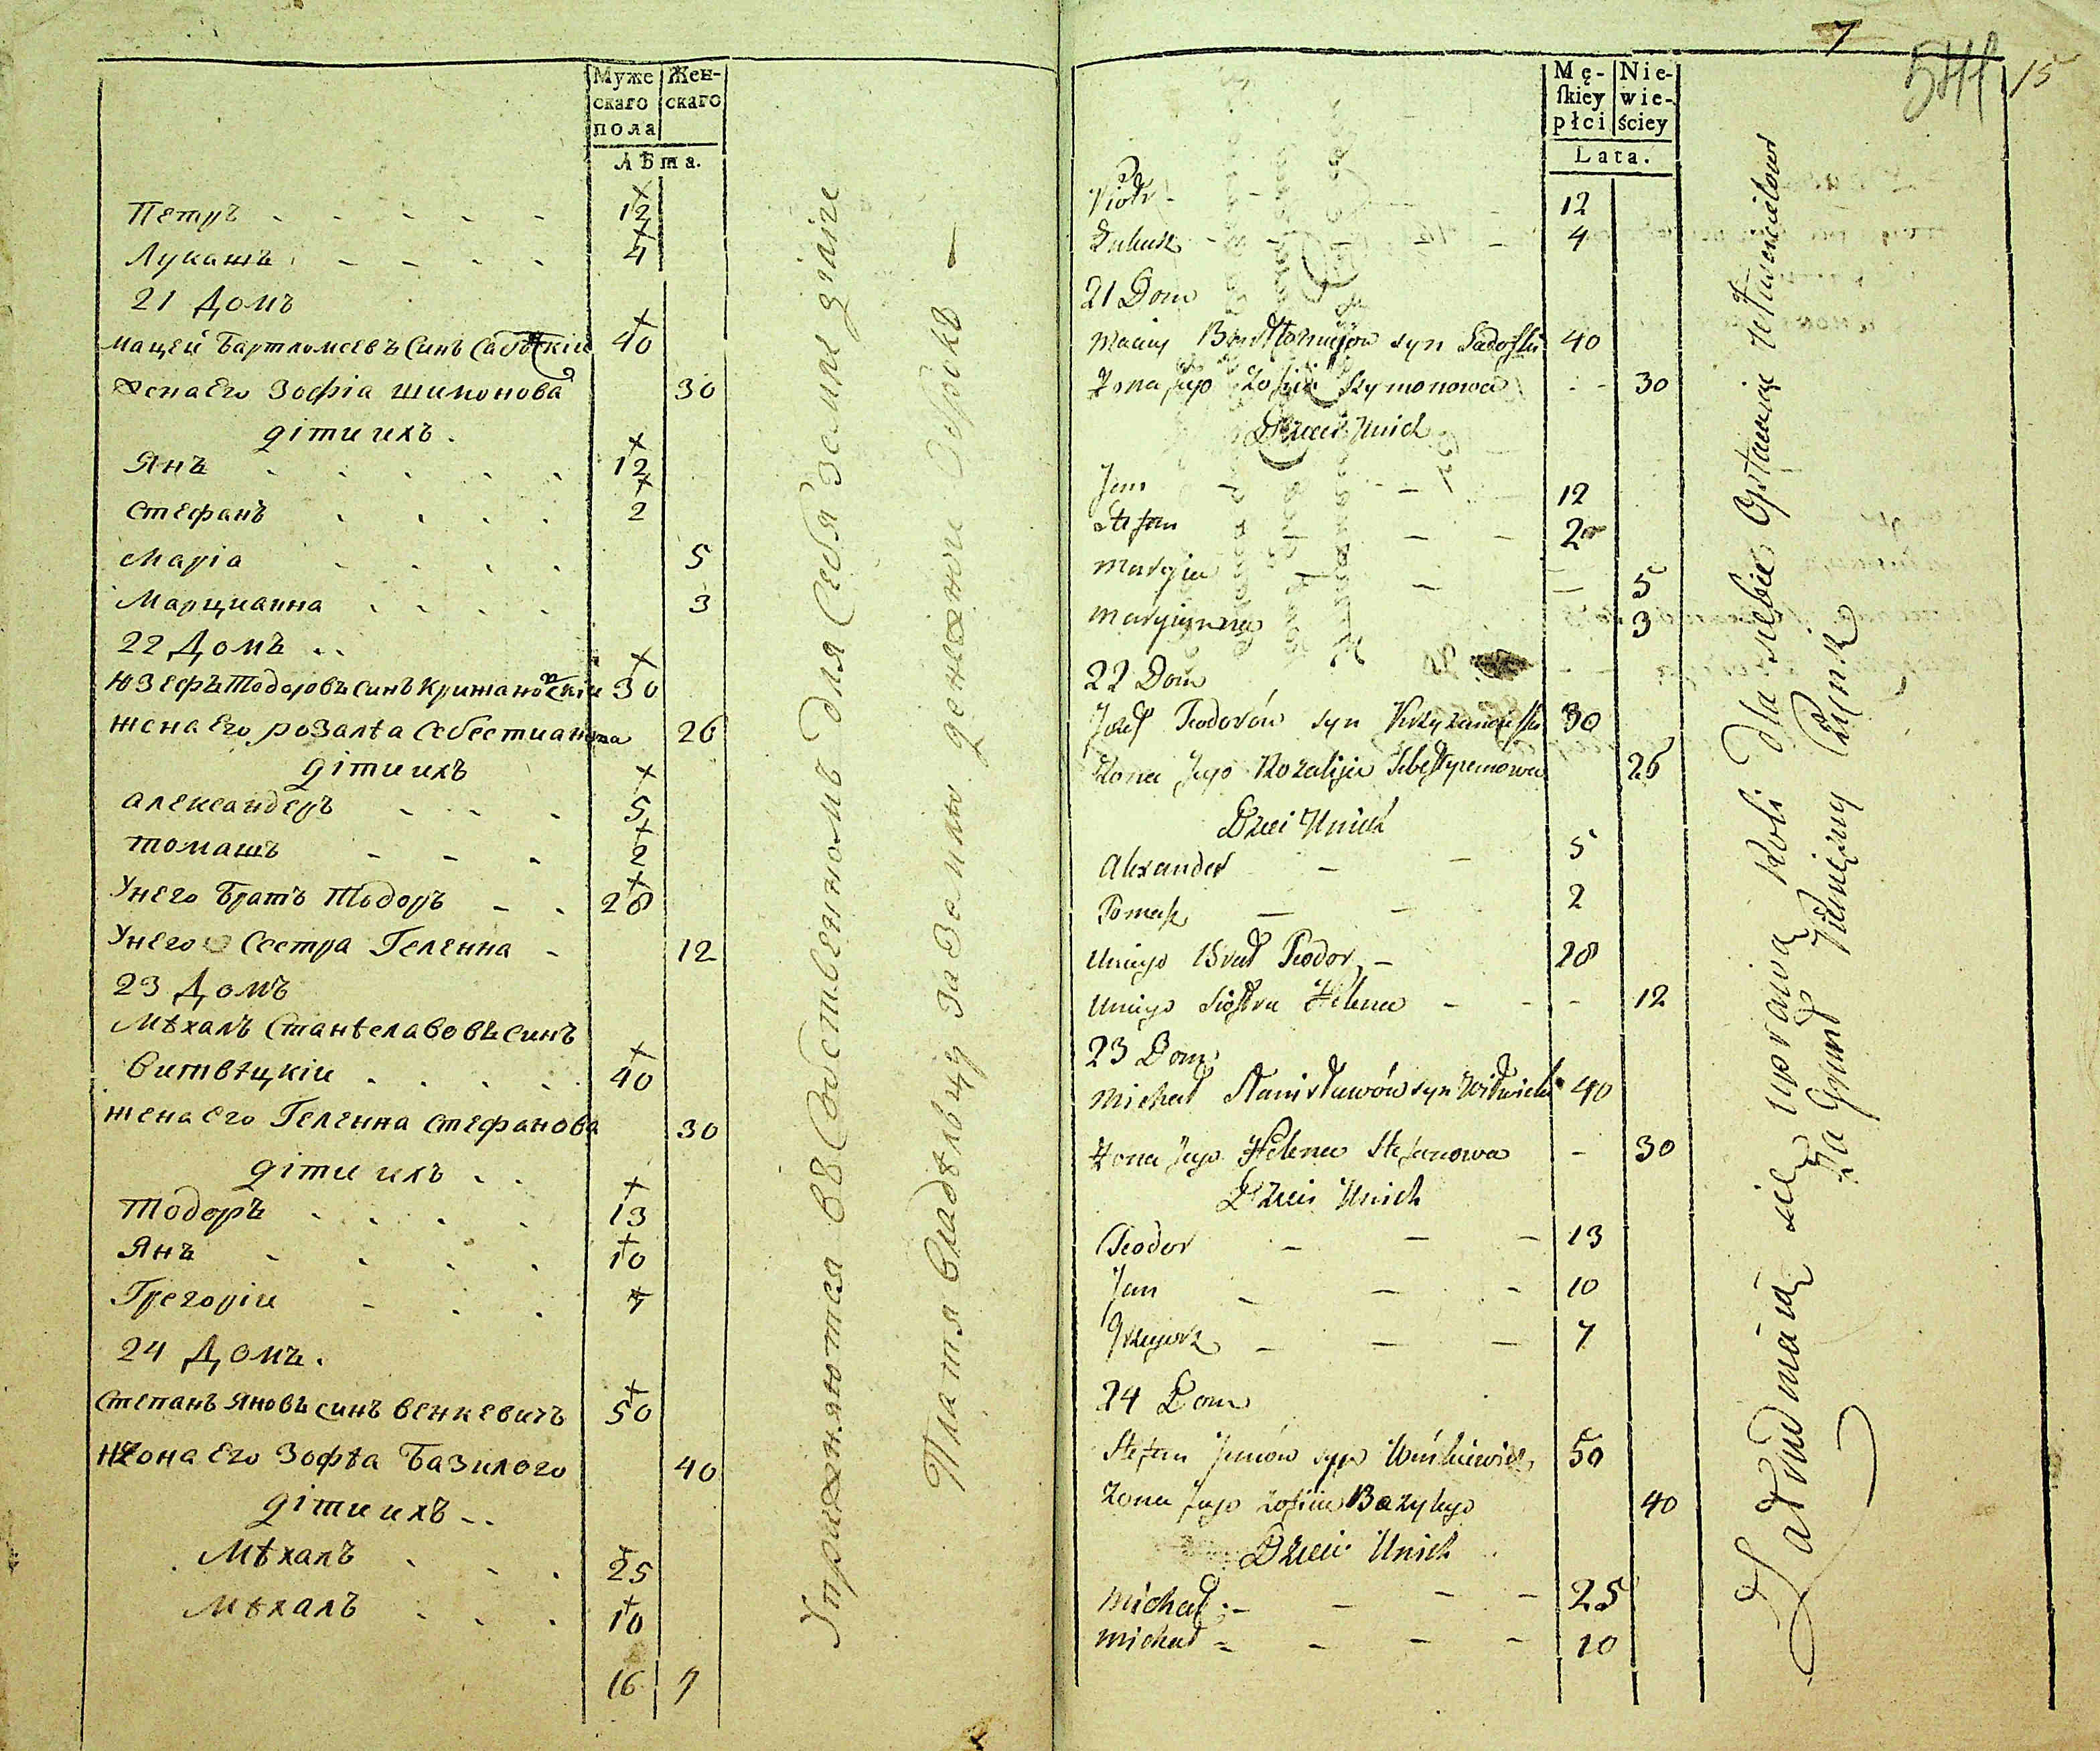 Муже Жен-
скаго скаго
пола
Лѣта.
Петръ - - - - - 12
Лукашъ - - - - 4
21 Домъ
мацей Бартломеевъ Синъ 40
жена Его Зофіа Шимонова 30
діти ихъ.
Янъ 12
Стефанъ 2
Маріа 5
Марцианна 3
22 Домъ ..
Юзефъ Тодоровъ Синъ Крижановскіи 30
жена Его розалѣа Себестианова 26
діти ихъ
александеръ 5
томашъ - - - 2
Унего Братъ Тодоръ - - 28
Унего Сестра Геленна - 12
23 Домъ
Мѣхалъ Станѣславовъ Синъ
Витвѣцкіи 40
жена Его Геленна Стефанова 30
діти ихъ ..
Тодоръ 13
Янъ 10
Грегоріи 7
24 Домъ.
Степанъ Яновъ синъ Венкевичъ 50
жона Его Зофѣа Базилого 40
діти ихъ --
Мѣхалъ 25
Мѣхалъ 10
16 7
Упражняются въ Собственномъ для Себя земле дѣліе
Платя Владѣльцу за Землю денежніе Оброкъ —
7
15
Mę- Nie-
ſkiey wie-
płci ściey
Lata.
Piotr - 12
Łukasz - - - - 4
21 Dom
Maciej Bartłomiejów syn Sadoſki 40
Żona Jego Zofiia Szymonowa - - 30
Dzieci Unich
Jan - - 12
Stefan - - - 2
Maryia - - 5
Maryianna 3
22 Dom
Józef Teodorów syn Krzyżanowſki 30
Żona Jego Rozalija Sebestyanowa 26
Dzieci Unich
Alexander - - 5
Tomasz - - 2
Uniego Brat Teodor - 28
Uniego Siostra Helena - - - 12
23 Dom
Michał Stanisławów syn Witwicki 40
Żona Jego Helena Stefanowa - 30
Dzieci Unich
Teodor - - - 13
Jan - - - 10
Grzegorz - - - 7
24 Dom
Stefan Janów syn Wińkiewicz 50
Żona Jego Zofiia Bazylego 40
Dzieci Unich
Michał - - - - 25
Michał - - - - 10
Zatrudniaią się uprawą Roli dla siebie Opłacaiąc
Za Grunt Pieniężny Czynsz